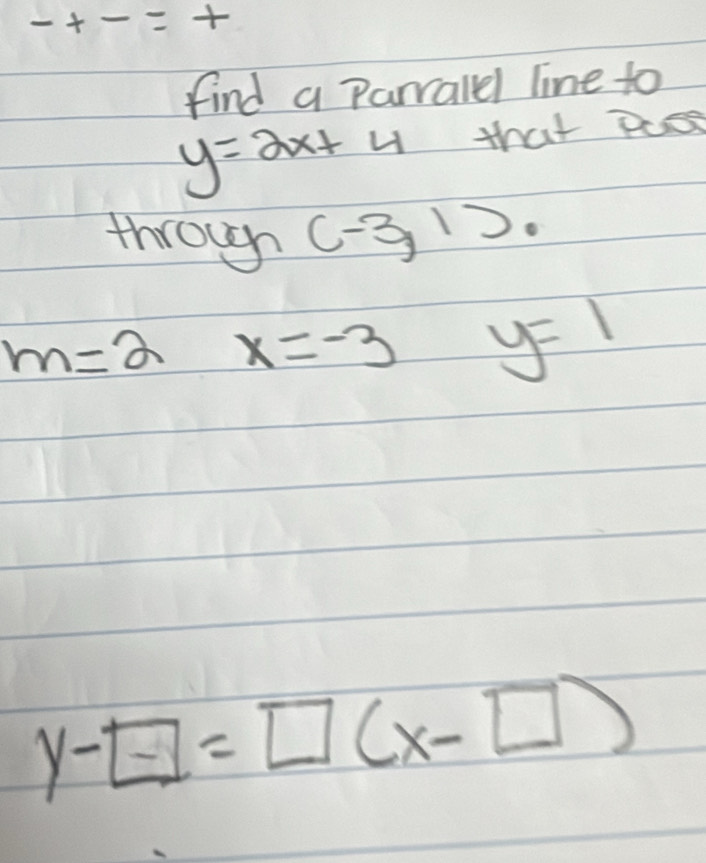 - + - = +
find a Parrallel line to
y=2x+4 that Pass
through (-3, 1).
m=2 x=-3 y=1
y-□=□(x-□)